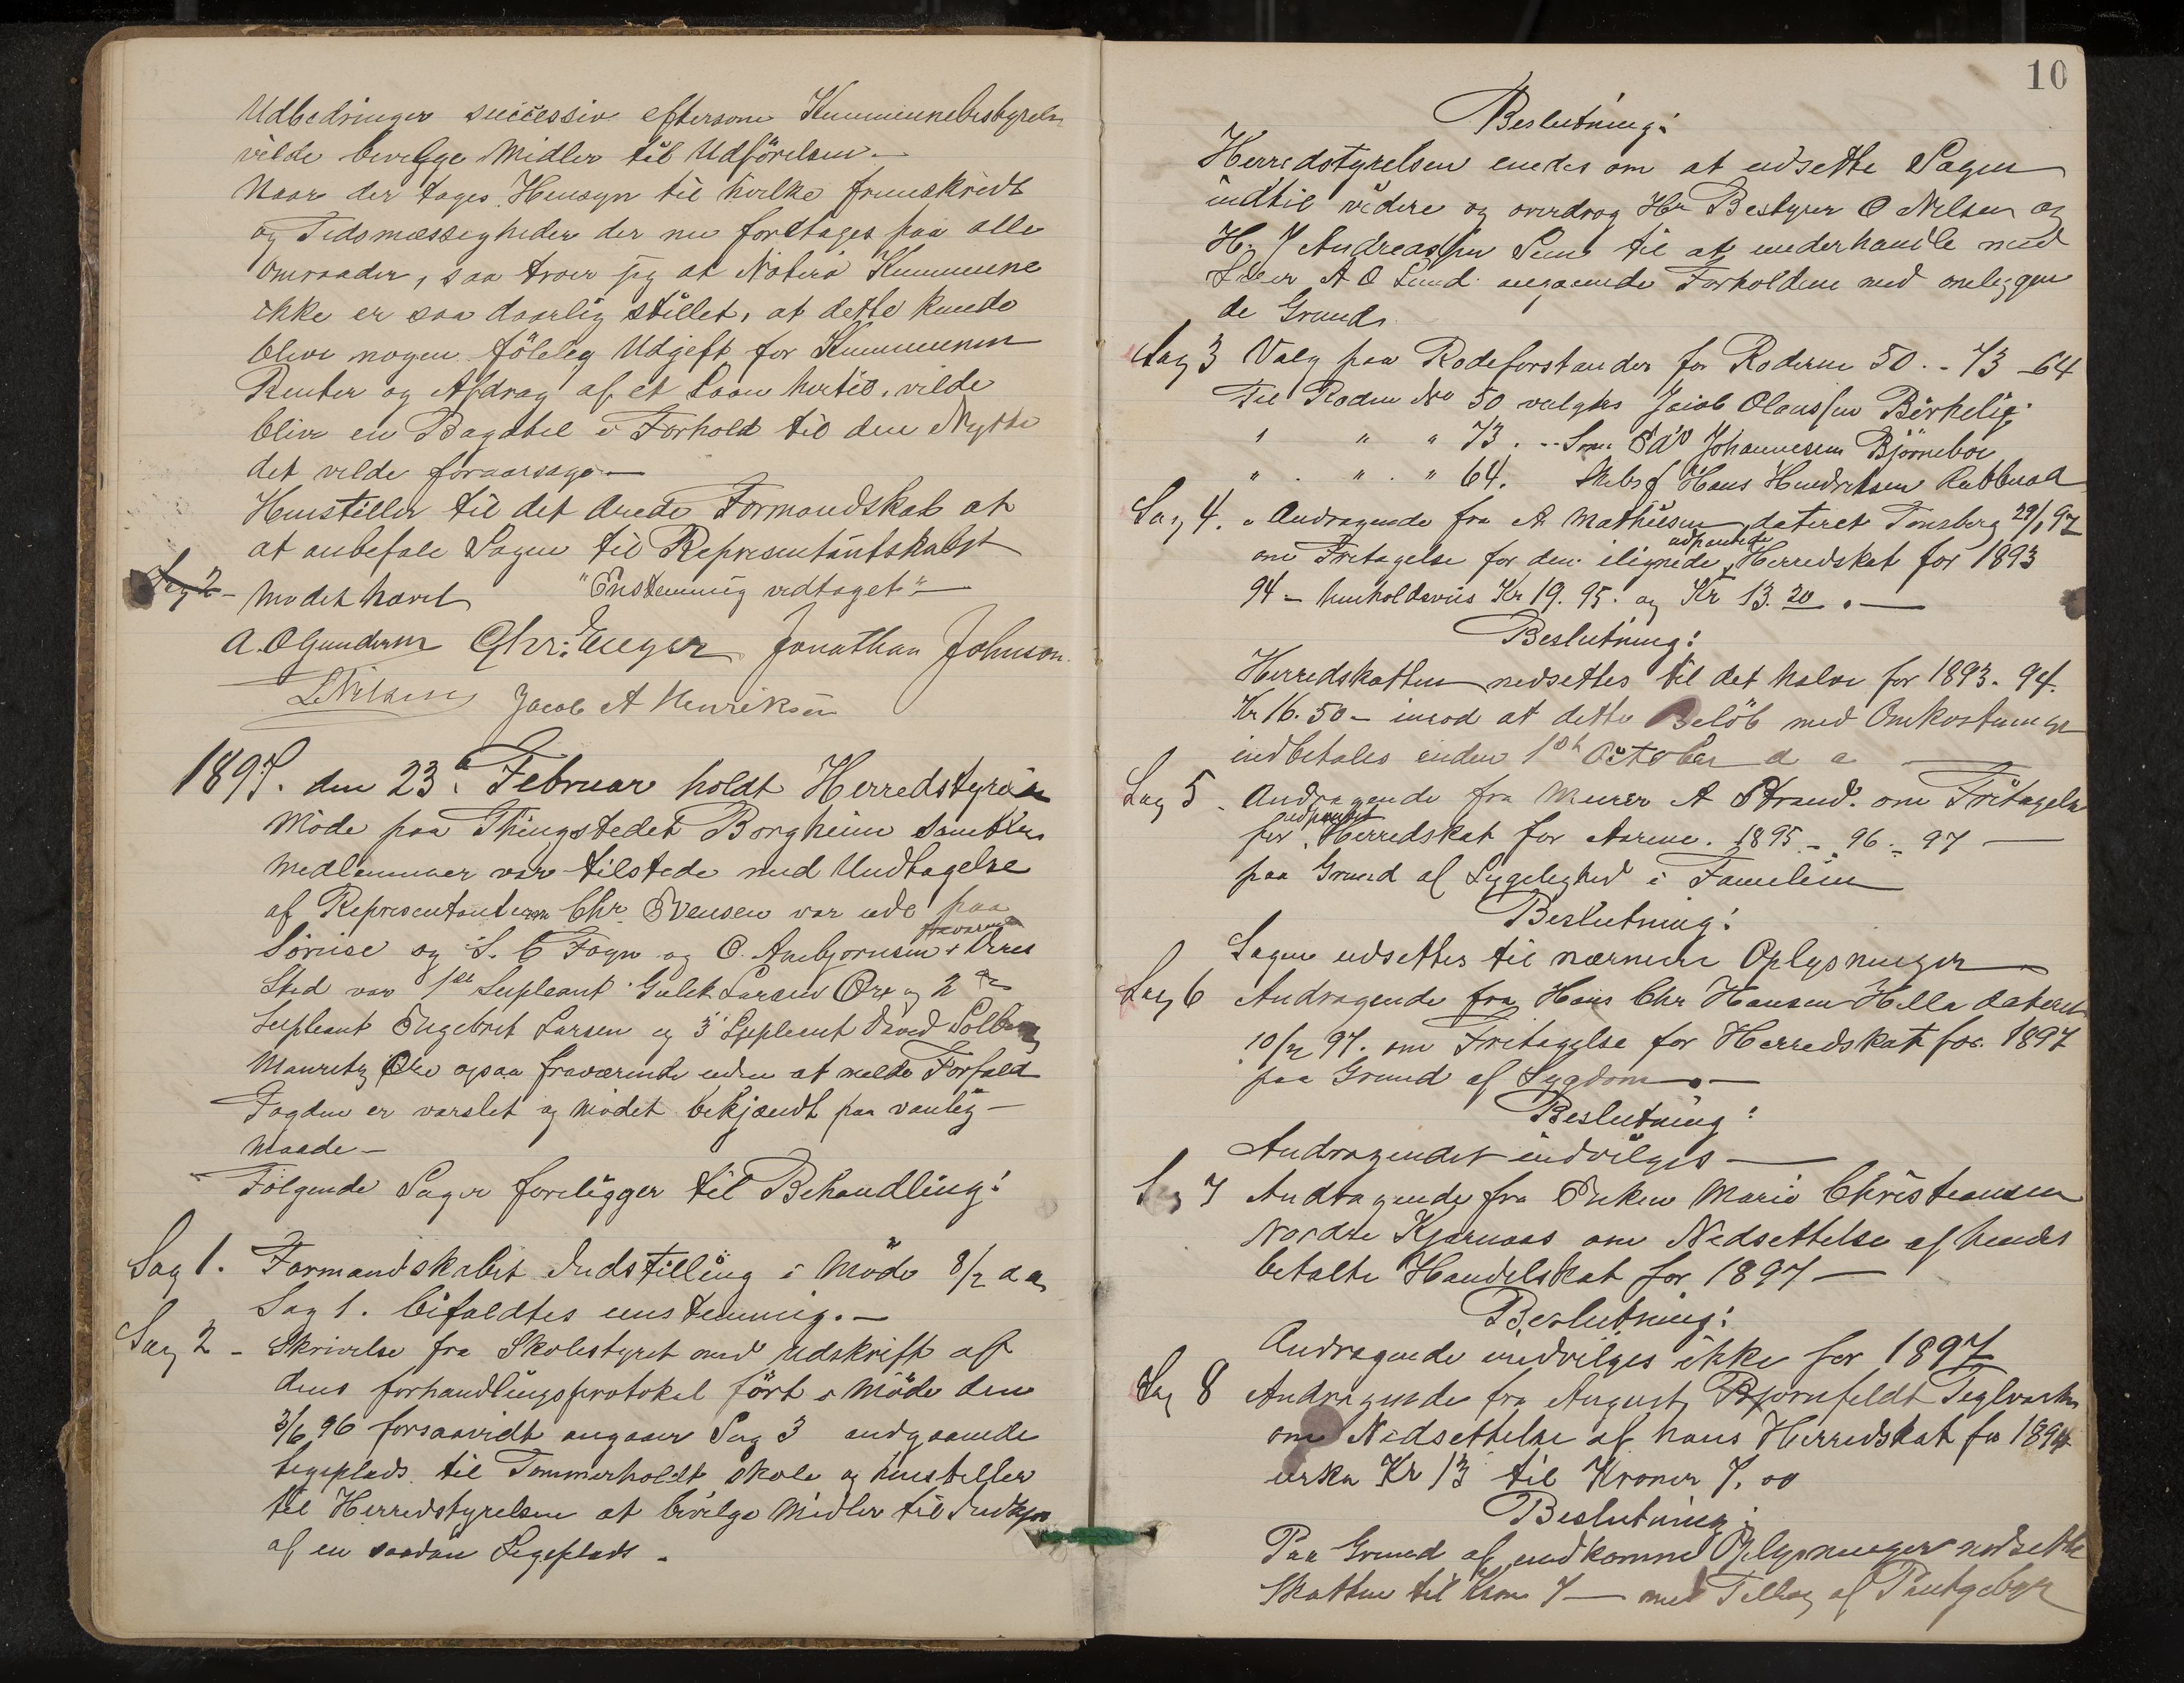 Udbedringer successiv eftersom Kummunebestyrels
vilde bevelge Midler til Udförelsen.—
Naar der tages Hensyn til hvilke fremskridt
og Tidsmæssigheder der nu foretages paa alle
Omraader, saa troer jeg at Nöterö Kummune
ikke er saa daarlig stillet, at dette kunde
blive nogen fölelig Udgift for Kummunen
Renter og Afdrag af et Laan hertil, vilde
blive en Bagatel i Forhold til den Nytte
det vilde foraarsage—
Henstiller til det ærede Formandskab at
at anbefale Sagen til Representantskabet
Sag 2 - Mödet hævet "Enstemmig vedtaget"—
A. O Gundersen Chr: Unger Jonathan Johnson
L Nilsen Jacob A Henriksen
1897. den 23. Februar holdt Herredstyret
Möde paa Thingstedet Borgheim samtlige
Medlemmer var tilstede med Undtagelse
af Representanterne Chr. Svensen var ude paa
fraværende
Söreise og S. C Fogn og O. Anbjornsen i deres
Sted var 1ste Supleant Gulik Larsen Öre og 2de
Supleant Engebret Larsen og 3 Supleant David Solberg
Mauretz Öre ogsaa fraværende uden at melde Forfald
Fogden er varslet og Mödet bekjændt paa vanlig—
Maade—
Fölgende Sager foreligger til Behandling:
Sag 1. Formandskabet Indstilling i Möde 8/2 d a
Sag 1. bifaldtes enstemmig.—
Sag 2 - Skrivelse fra Skolestyret med Udskrift af
dens forhandlingsprotokol fört i Möde den
3/6 96 forsaavidt angaaer Sag 3 angaaende
Legeplads til Tommerholdt Skole og henstiller
til Herredstyrelsen at bevilge Midler til Indkjöp
af en saadan Legeplads.
10
Beslutning:
Herredstyrelsen enedes om at udsette Sagen
indtil videre og overdrog Hr Bestyrer O Nilsen og
H. J Andreassen Sem til at underhandle med
A O Lund angaaende Forholdene med omliggen
de Grund.
Sag 3 Valg paa Rodeforstander for Roderne 50 - 73 - 64
Til Roden No 50 valgtes Jacob Olaussen Birkelig
" " " 73. Ed Johannesen Björneboe
" " " 64. Skibsf Hans Hendriksen
Sag 4. Andragende fra A Mathiesen dateret Tönsberg 29/1 97
udpantede
om Fritagelse for den ilignede Herredskat for 1893
94 — henholdsvis Kr 19.95. og Kr 13.20.—
Beslutning:
Herredskatten nedsettes til det halve for 1893. 94.
Kr 16.50 — imod at dette Belöb med Omkostninger
indbetales inden 1ste October d a
Sag 5. Andragende fra Murer A Strand. om Fritagelse
udpantet
for Herredskat for Aarene. 1895 - 96 - 97 —
paa Grund af Sygelighed i Familien
Beslutning:
Sagen udsettes til nærmere Oplysninger
Sag 6 Andragende fra Hans Chr Hansen Hella dateret
10/2 97. om Fritagelse for Herredskat for 1897
paa Grund af Sygdom.—
Beslutning:
Andragendet indvilges—
Sag 7 Andragende fra Enken Marie Christiansen
Nordre Kjærnaas om Nedsettelse af hendes
betalte Handelskat for 1897—
Beslutning:
Andragende indvilges ikke for 1897
Sag 8 Andragende fra August Bjornfeldt Teglverken
om Nedsettelse af hans Herredskat for 1894
cirka Kr 13 til Kroner 7.00
Beslutning:
Paa Grund af indkomne Oplysninger nedsette
Skatten til Kron 7— med Tillæg af Pantgebyr